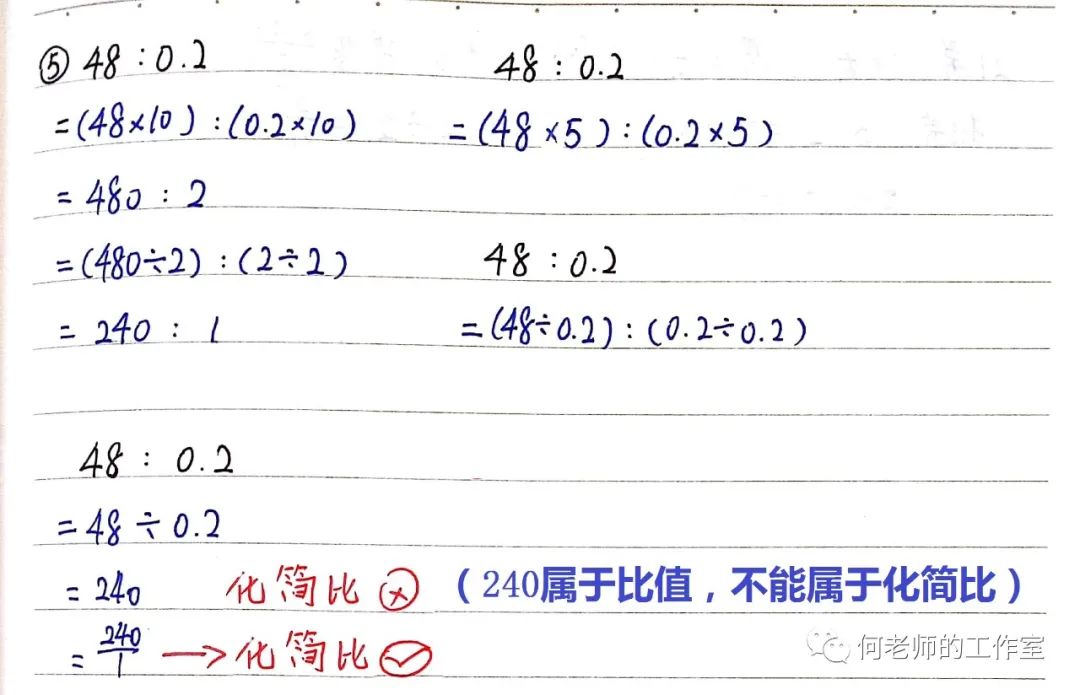 ⑤ 48 : 0.2
=(48×10) : (0.2×10)
= 480 : 2
=(480÷2) : (2÷2)
= 240 : 1
48 : 0.2
=(48×5) : (0.2×5)
48 : 0.2
=(48÷0.2) : (0.2÷0.2)
48 : 0.2
=48÷0.2
=240 化简比 ⊗ (240属于比值，不能属于化简比)
=240/1 → 化简比 ✓
何老师的工作室